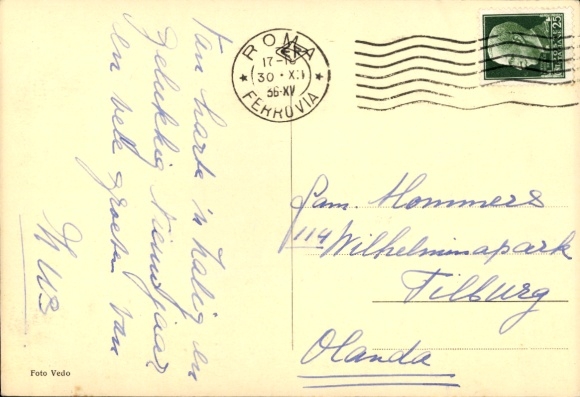 Van harte 'n Zalig en
gelukkig Nieuwjaar
en vele groeten van
ROMA
17-18
30 · XII
36·XV
FERROVIA
25
fam. Mommers
114 Wilhelminapark
Tilburg
Olanda
Foto Vedo